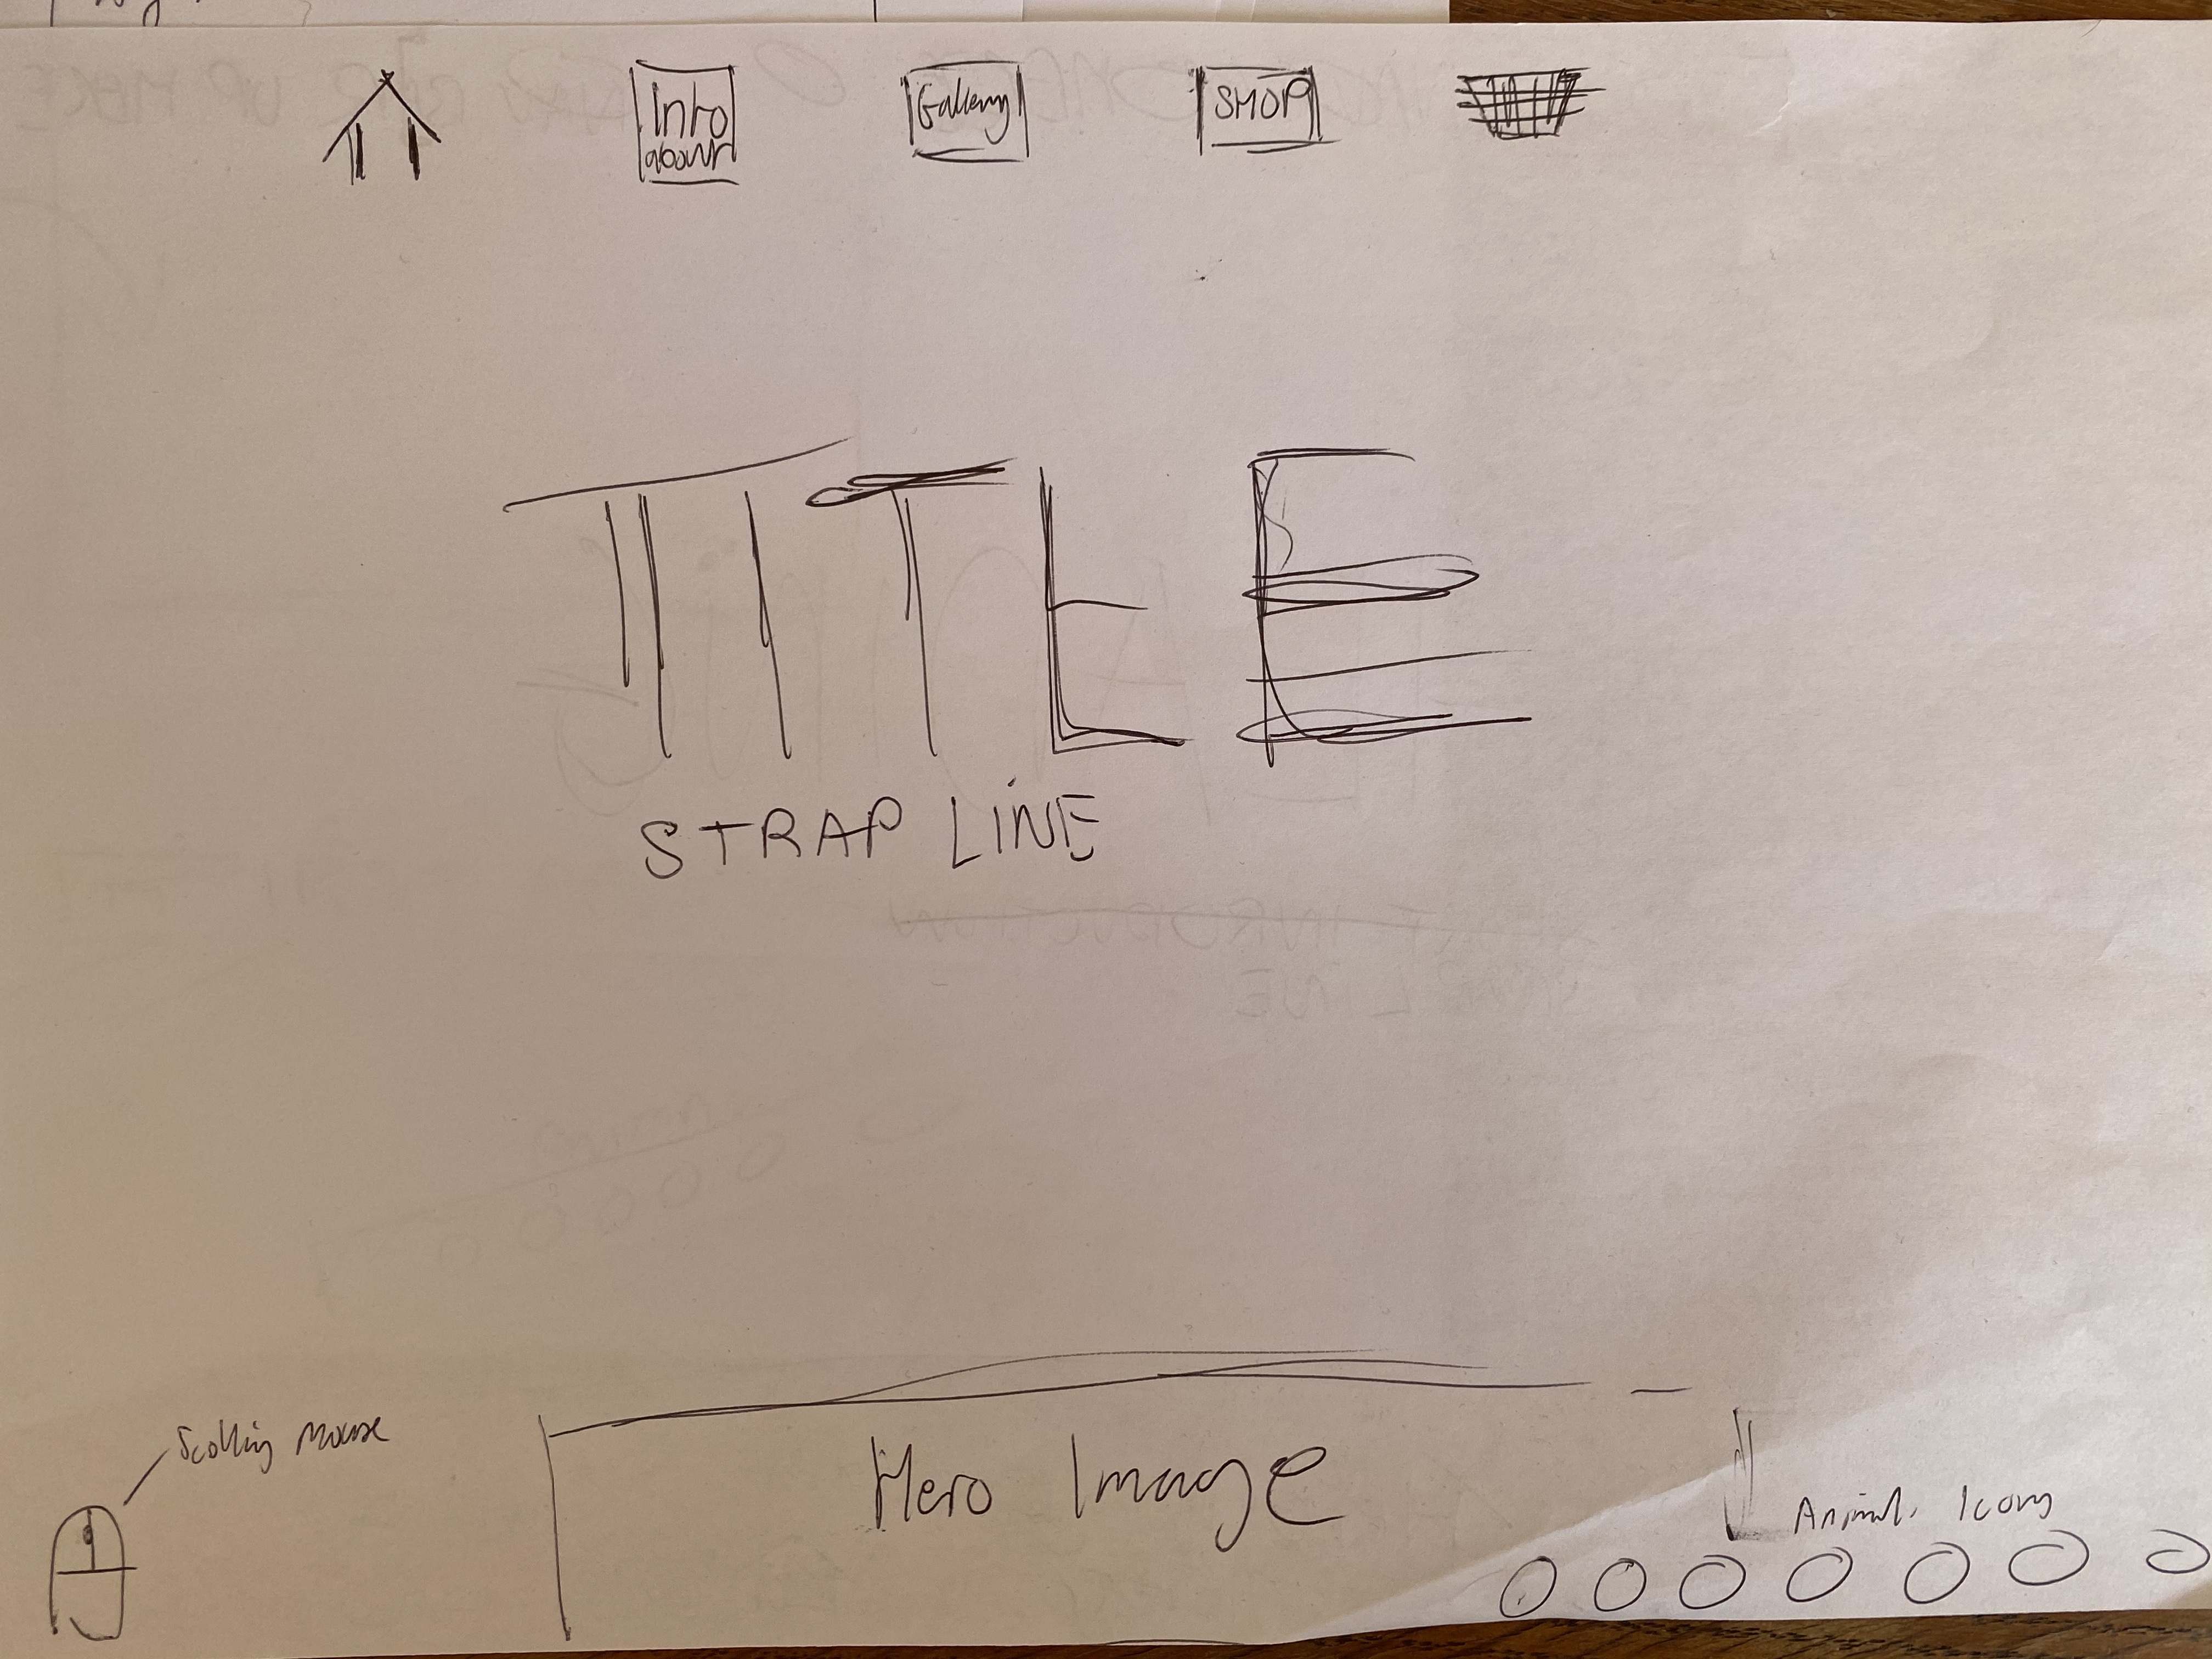 Info
about
Gallery
SHOP
TITLE
STRAP LINE
Scolling Mouse
Hero Image
Icons